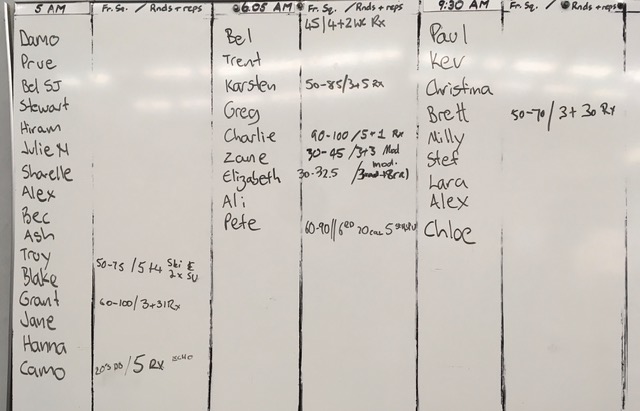 5 AM Fr. Sq. / Rnds + reps 6:05 AM Fr. Sq. / Rnds + reps 9:30 AM Fr. Sq. / Rnds + reps
Damo Bel 45/4+2 Rx Paul
Prue Trent Kev
Bel SJ Karsten 50-85/3+5 Rx Christina
Stewart Greg Brett 50-70/3+30 Rx
Hiram Charlie 90-100/5+1 Rx Milly
Julie M Zane 30-45/3+3 Mod Stef
Sharelle Elizabeth 30-32.5 / mod. Lara
Alex Ali Alex
Bec Pete 60-90//6 RD 20 cal 5 Chloe
Ash
Troy
Blake 50-75/5+4 Ski E 2x SU
Grant 60-100/3+31 Rx
Jane
Hanna
Camo /5 Rx ECHO